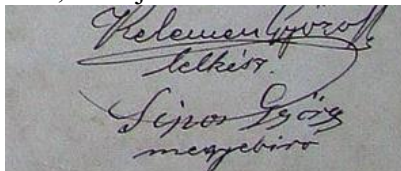 Kelemen György
lelkész.
Sipos György
megyebiro